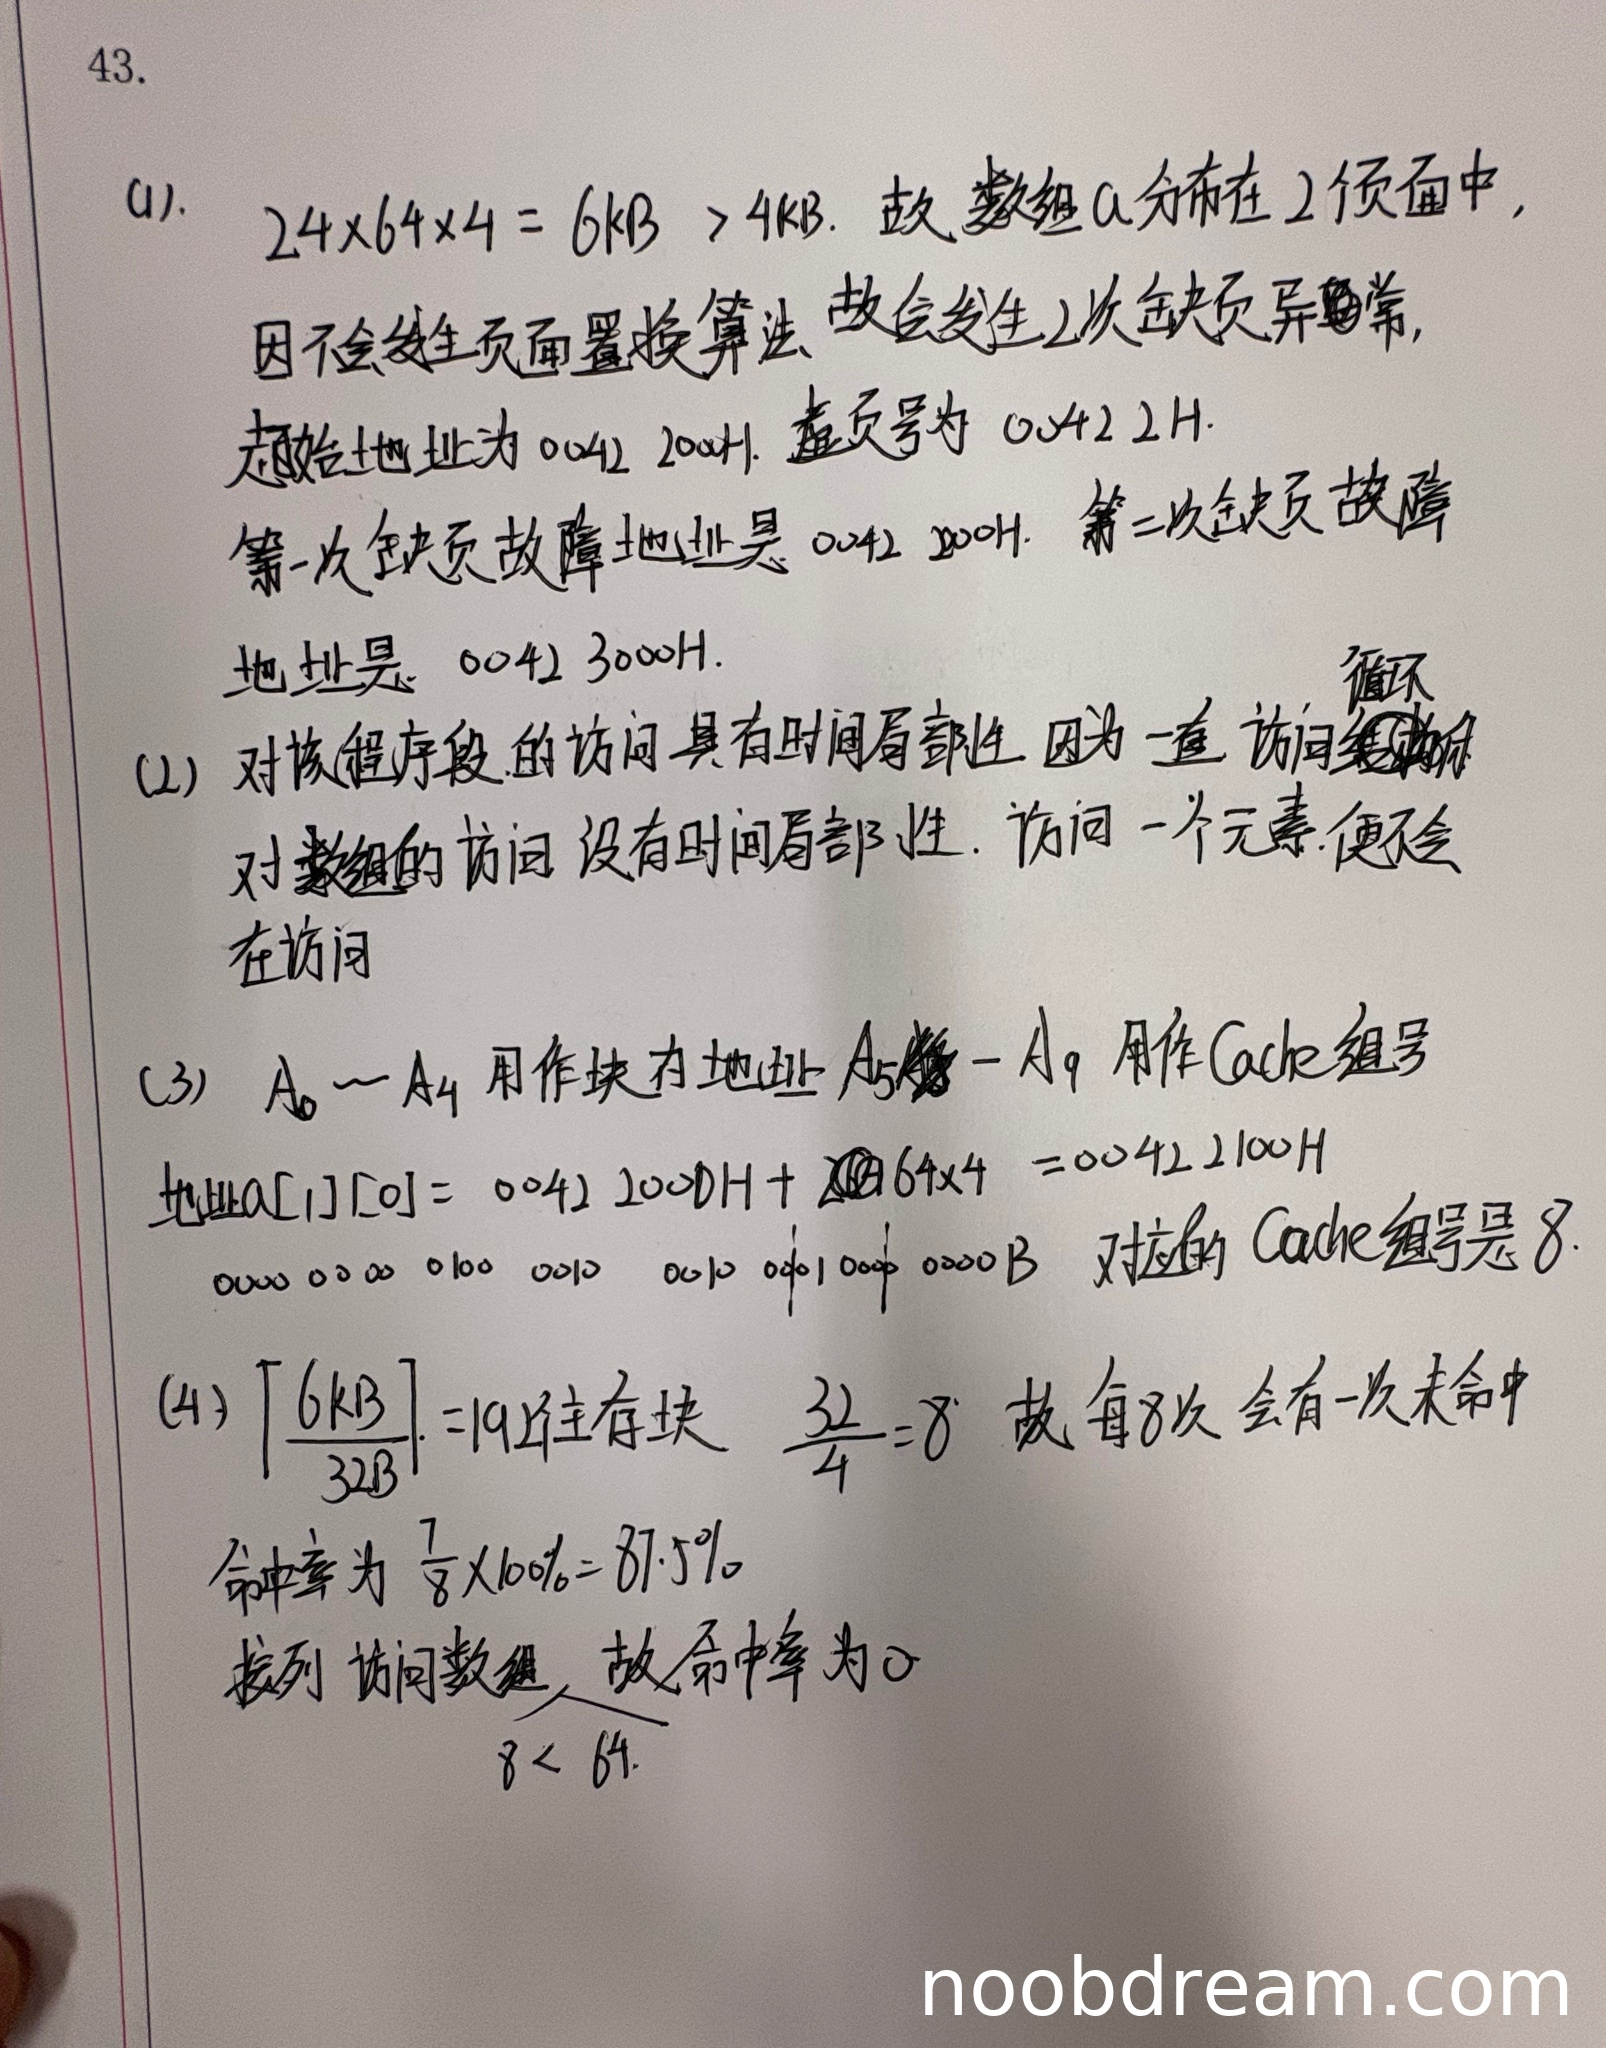 43.
(1). 24×64×4 = 6KB > 4KB. 故数组a分布在2个页面中,
因不会发生页面置换算法 故会发生2次缺页异常,
起始地址为 0042 2000H. 虚页号为 00422H.
第一次缺页故障地址是 0042 2000H. 第二次缺页故障
地址是 0042 3000H.
循环
(2) 对该程序段的访问具有时间局部性 因为一直访问
对数组的访问没有时间局部性. 访问一个元素.便不会
在访问
(3) A0 ~ A4 用作块内地址 A5 - A9 用作Cache组号
地址a[1][0] = 0042 2000H + 64×4 = 0042 2100H
0000 0000 0100 0010 0010 0001 0000 0000B 对应的 Cache组号是 8.
(4) ⌈6KB/32B⌉ = 192个主存块 32/4 = 8 故 每8次 会有一次未命中
命中率为 7/8 × 100% = 87.5%
按列 访问数组, 故命中率为0
8 < 64.
noobdream.com